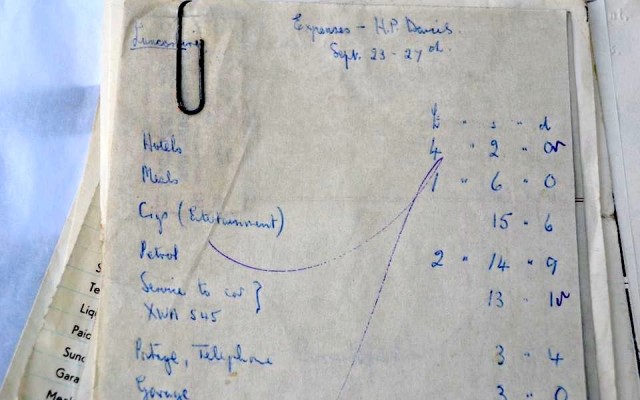 Lancashire
Expenses - H.P. Davis
Sept. 23 - 27th.
£ " s " d
Hotels 4 " 2 " 0
Meals 1 " 6 " 0
Cigs (Entertainment) 15 " 6
Petrol 2 " 14 " 9
Service to car } 13 " 10
XWA 545
Postage, Telephone 3 " 4
Garage 3 " 0
S
Te
Liqu
Paic
Sund
Gara